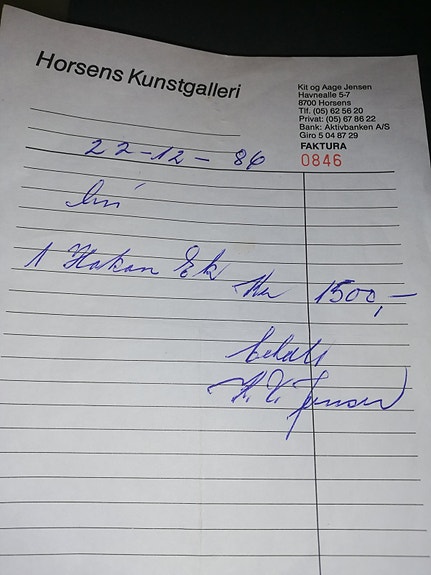 Horsens Kunstgalleri
Kit og Aage Jensen
Havnealle 5-7
8700 Horsens
Tlf. (05) 62 56 20
Privat: (05) 67 86 22
Bank: Aktivbanken A/S
Giro 5 04 87 29
FAKTURA
0846
22-12-86
1 Hakan Ek
Kr 1500,-
betalt
Jensen